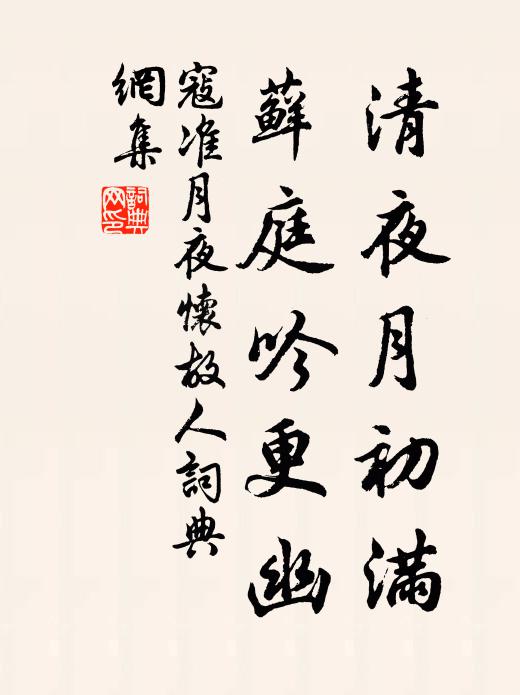 清夜月初滿
蘚庭吟更幽
寇准月夜懷故人詞典
網集
詞典
网印